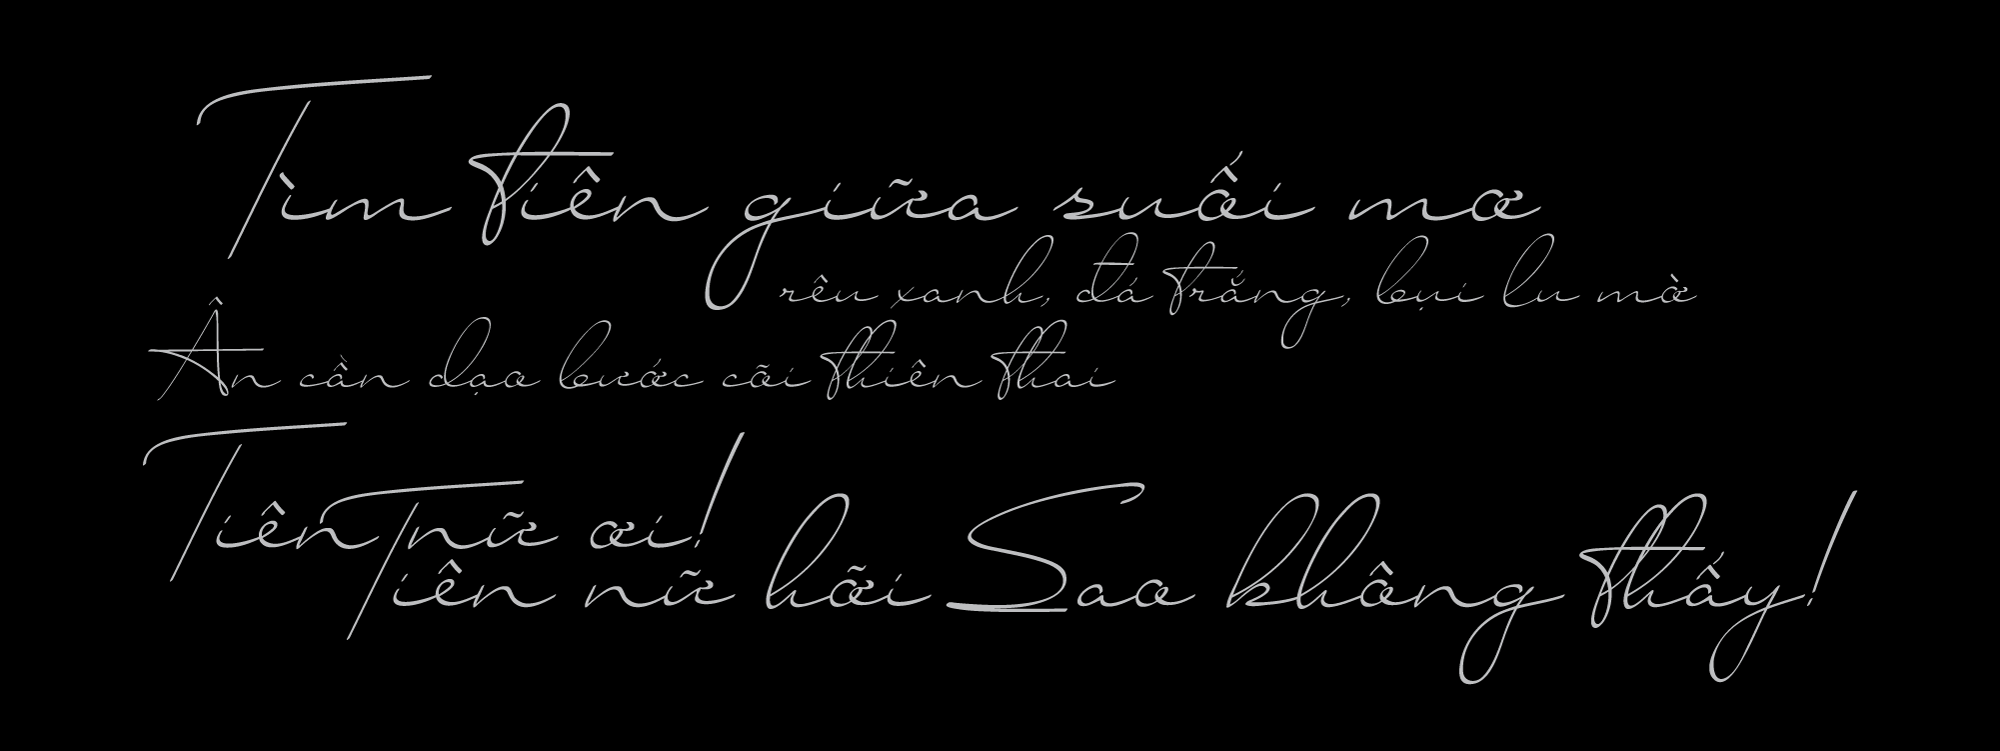 Tìm tiên giữa suối mơ
rêu xanh, đá trắng, bụi lu mờ
Ân cần dạo bước cõi thiên thai
Tiên nữ ơi!
Tiên nữ hỡi Sao không thấy!